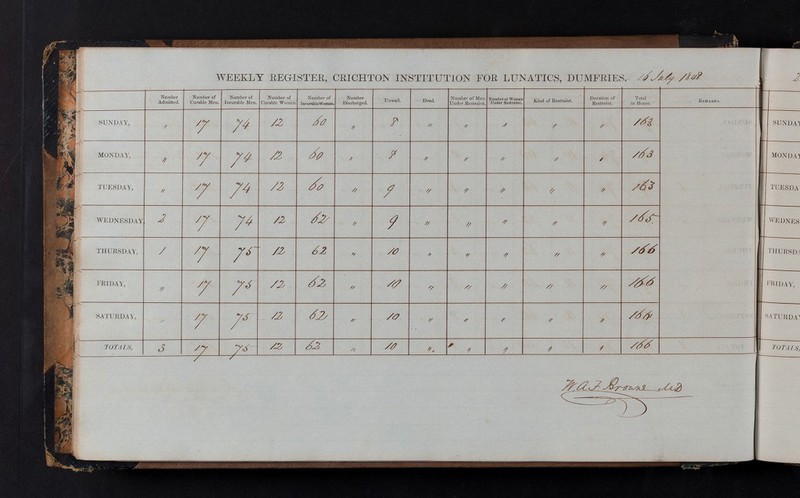 WEEKLY REGISTER, CRICHTON INSTITUTION FOR LUNATICS, DUMFRIES. 16 July 1848
Number Admitted. Number of Curable Men. Number of Incurable Men. Number of Curable Women. Number of Incurable Women. Number Discharged. Unwell. Died. Number of Men Under Restraint. Number of Women Under Restraint. Kind of Restraint. Duration of Restraint. Total in House. REMARKS.
SUNDAY, " 17 74 12 60 " 8 " " " " " 163
MONDAY, " 17 74 12 60 " 8 " " " " " 163
TUESDAY, " 17 74 12 60 " 9 " " " " " 163
WEDNESDAY, 2 17 74 12 62 " 9 " " " " " 165
THURSDAY, 1 17 75 12 62 " 10 " " " " " 166
FRIDAY, " 17 75 12 62 " 10 " " " " " 166
SATURDAY, " 17 75 12 62 " 10 " " " " " 166
TOTALS, 3 17 75 12 62 " 10 " " " " " 166
W.A.F. Browne MD
SUNDAY
MONDAY
TUESDA
WEDNES
THURSD
FRIDAY,
SATURDA
TOTALS,